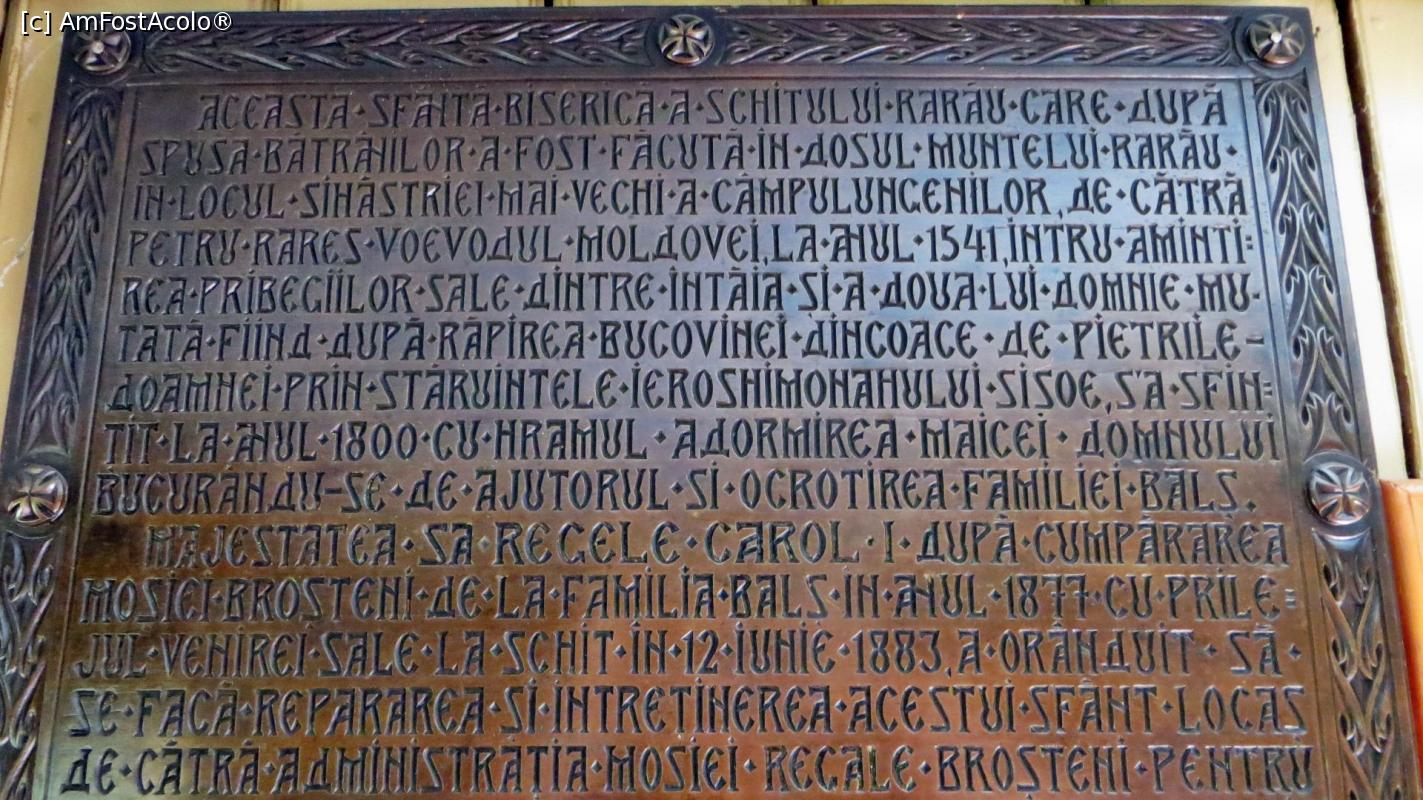 [c] AmFostAcolo®
ACEASTA·SFÂNTĂ·BISERICĂ·A·SCHITULUI·RARĂU·CARE·DUPĂ
SPUSA·BĂTRÂNILOR·A·FOST·FĂCUTĂ·ÎN·DOSUL·MUNTELUI·RARĂU·
IN·LOCUL·SIHĂSTRIEI·MAI·VECHI·A·CÂMPULUNGENILOR, DE·CĂTRĂ
PETRU·RAREȘ·VOEVODUL·MOLDOVEI, LA·ANUL·1541, INTRU·AMINTI=
REA·PRIBEGIILOR·SALE·DINTRE·INTĂIA·ȘI·A·DOUA·LUI·DOMNIE·MU-
TATĂ·FIIND·DUPĂ·RĂPIREA·BUCOVINEI·DINCOACE·DE·PIETRILE-
DOAMNEI·PRIN·STĂRUINTELE·IEROSHIMONAHULUI·SISOE, S'A·SFIN=
ȚIT·LA·ANUL·1800·CU·HRAMUL·ADORMIREA·MAICEI·DOMNULUI
BUCURÂNDU-SE·DE·AJUTORUL·ȘI·OCROTIREA·FAMILIEI·BALȘ.
MAJESTATEA·SA·REGELE·CAROL·I·DUPĂ·CUMPĂRAREA
MOȘIEI·BROȘTENI·DE·LA·FAMILIA·BALȘ·IN·ANUL·1877·CU·PRILE=
JUL·VENIREI·SALE·LA·SCHIT·ÎN·12·IUNIE·1883, A·ORÂNDUIT·SĂ·
SE·FACĂ·REPARAREA·ȘI·INTREȚINEREA·ACESTUI·SFÂNT·LOCAȘ
DE·CĂTRĂ·ADMINISTRAȚIA·MOȘIEI·REGALE·BROȘTENI·PENTRU